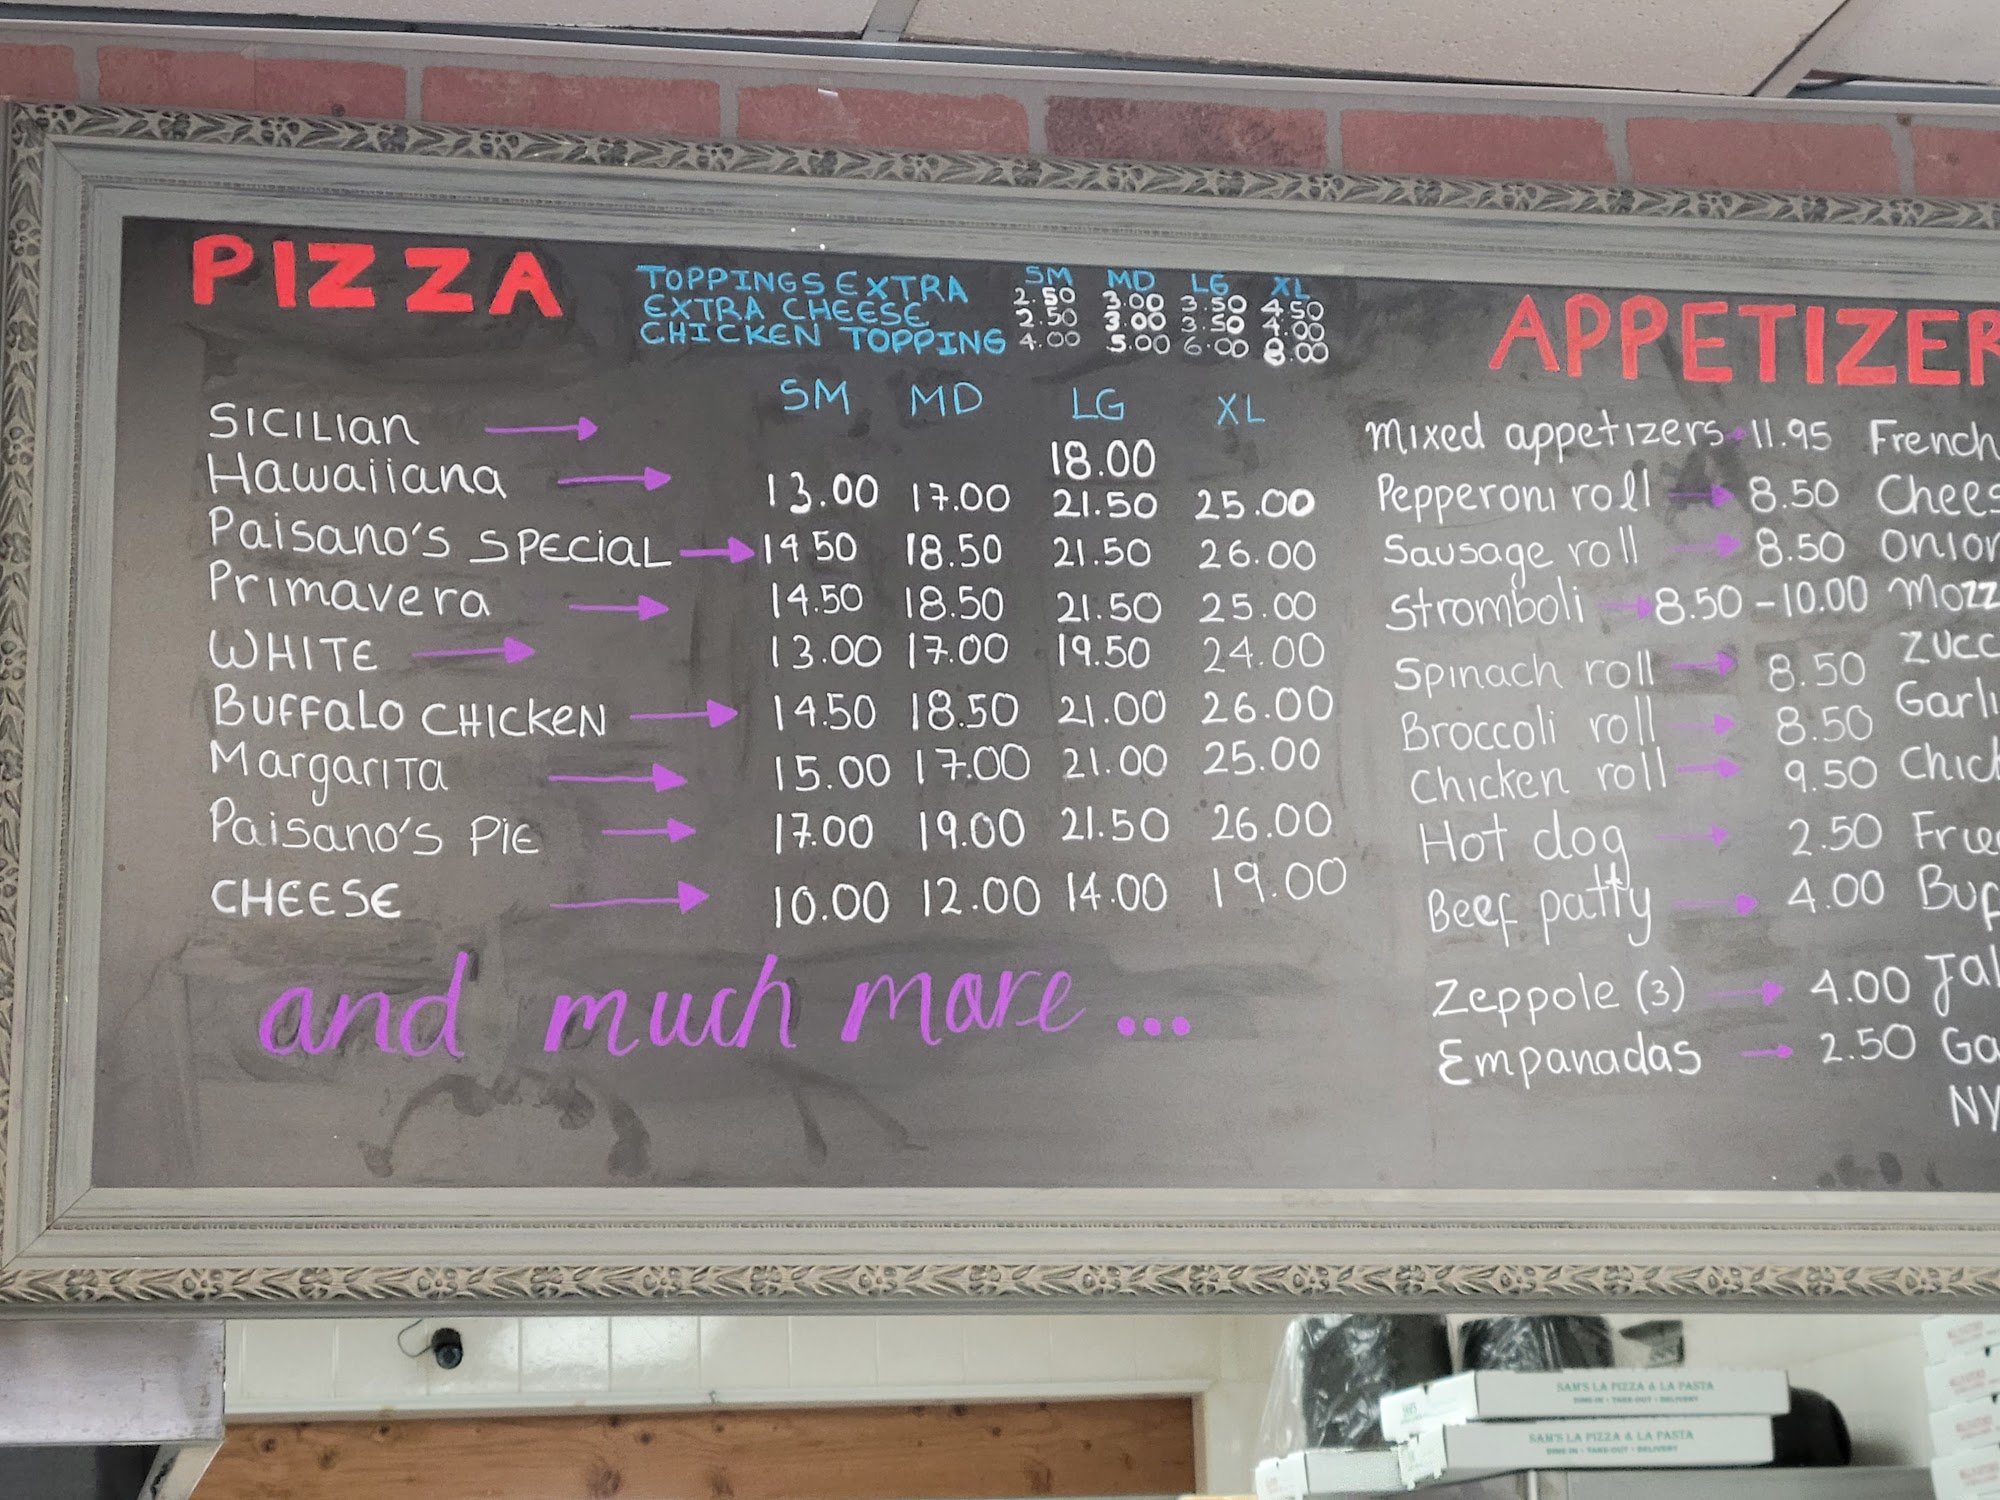 PIZZA
TOPPINGS EXTRA SM MD LG XL
2.50 3.00 3.50 4.50
EXTRA CHEESE 2.50 3.00 3.50 4.00
CHICKEN TOPPING 4.00 5.00 6.00 8.00
SM MD LG XL
SICILIan 18.00
Hawaiiana 13.00 17.00 21.50 25.00
Paisano's SPECIAL 14 50 18.50 21.50 26.00
Primavera 14.50 18.50 21.50 25.00
WHITE 13.00 17.00 19.50 24.00
BUFFALO CHICKEN 14.50 18.50 21.00 26.00
MargarITa 15.00 17.00 21.00 25.00
Paisano's PiE 17.00 19.00 21.50 26.00
CHEESE 10.00 12.00 14.00 19.00
and much more ...
APPETIZER
Mixed appetizers 11.95 French
Pepperoni roll 8.50 Chees
Sausage roll 8.50 Onion
Stromboli 8.50 - 10.00 Mozz
Spinach roll 8.50 Zucc
Broccoli roll 8.50 Garli
Chicken roll 9.50 Chick
Hot dog 2.50 Frie
Beef patty 4.00 Buf
Zeppole (3) 4.00 Jal
Empanadas 2.50 Ga
NY
SAM'S LA PIZZA & LA PASTA
DINE-IN • TAKE-OUT • DELIVERY
SAM'S LA PIZZA & LA PASTA
DINE-IN • TAKE-OUT • DELIVERY